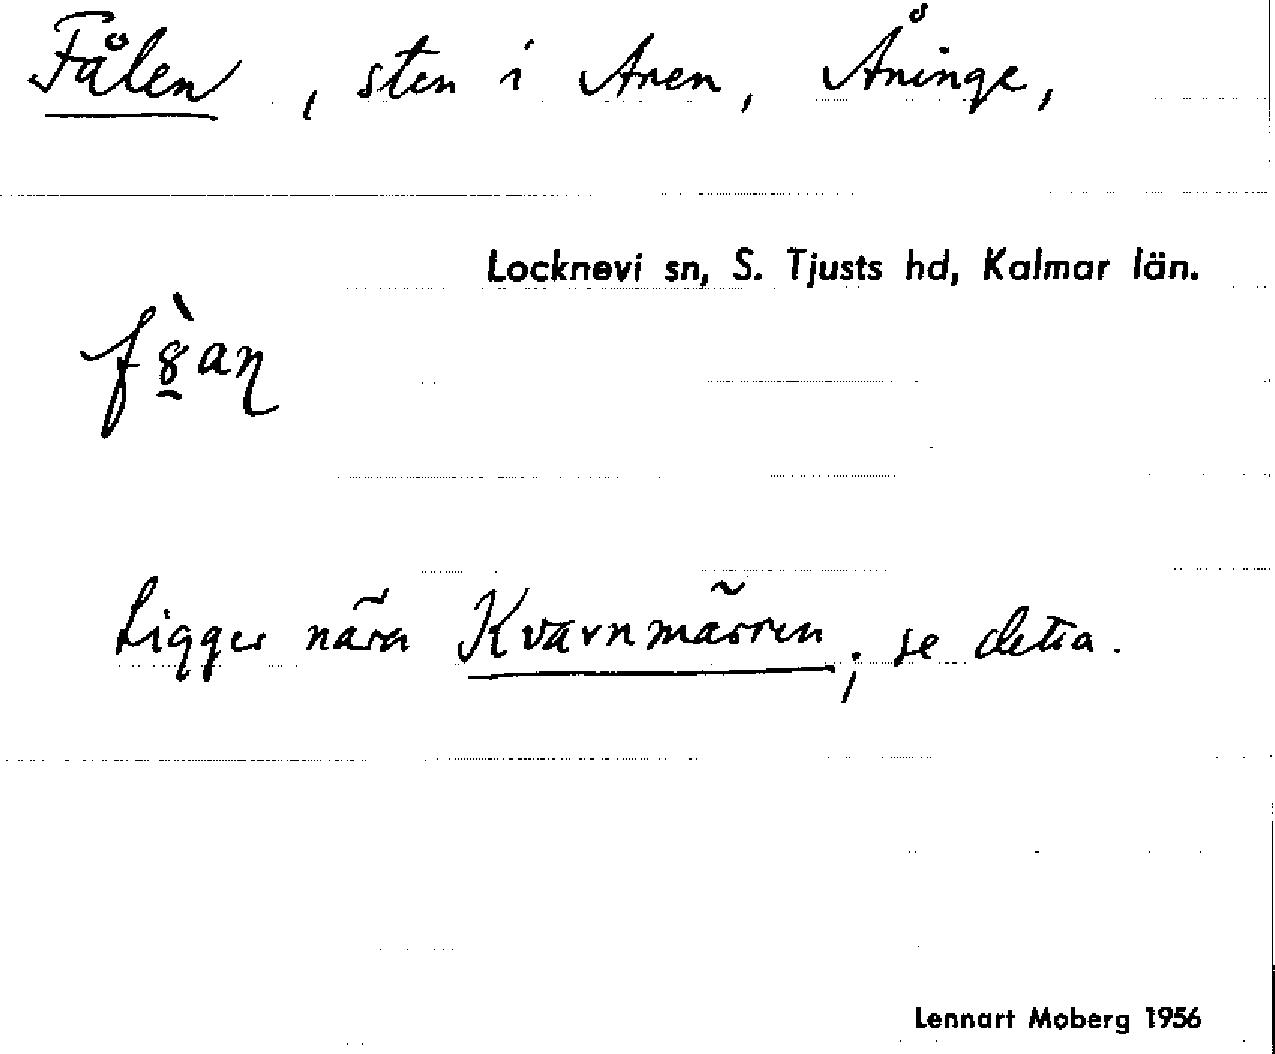 Fålen, sten i Aren, Åninge,
Locknevi sn, S. Tjusts hd, Kalmar län.
Ligger nära Kvarnmärren, se detta.
Lennart Moberg 1956